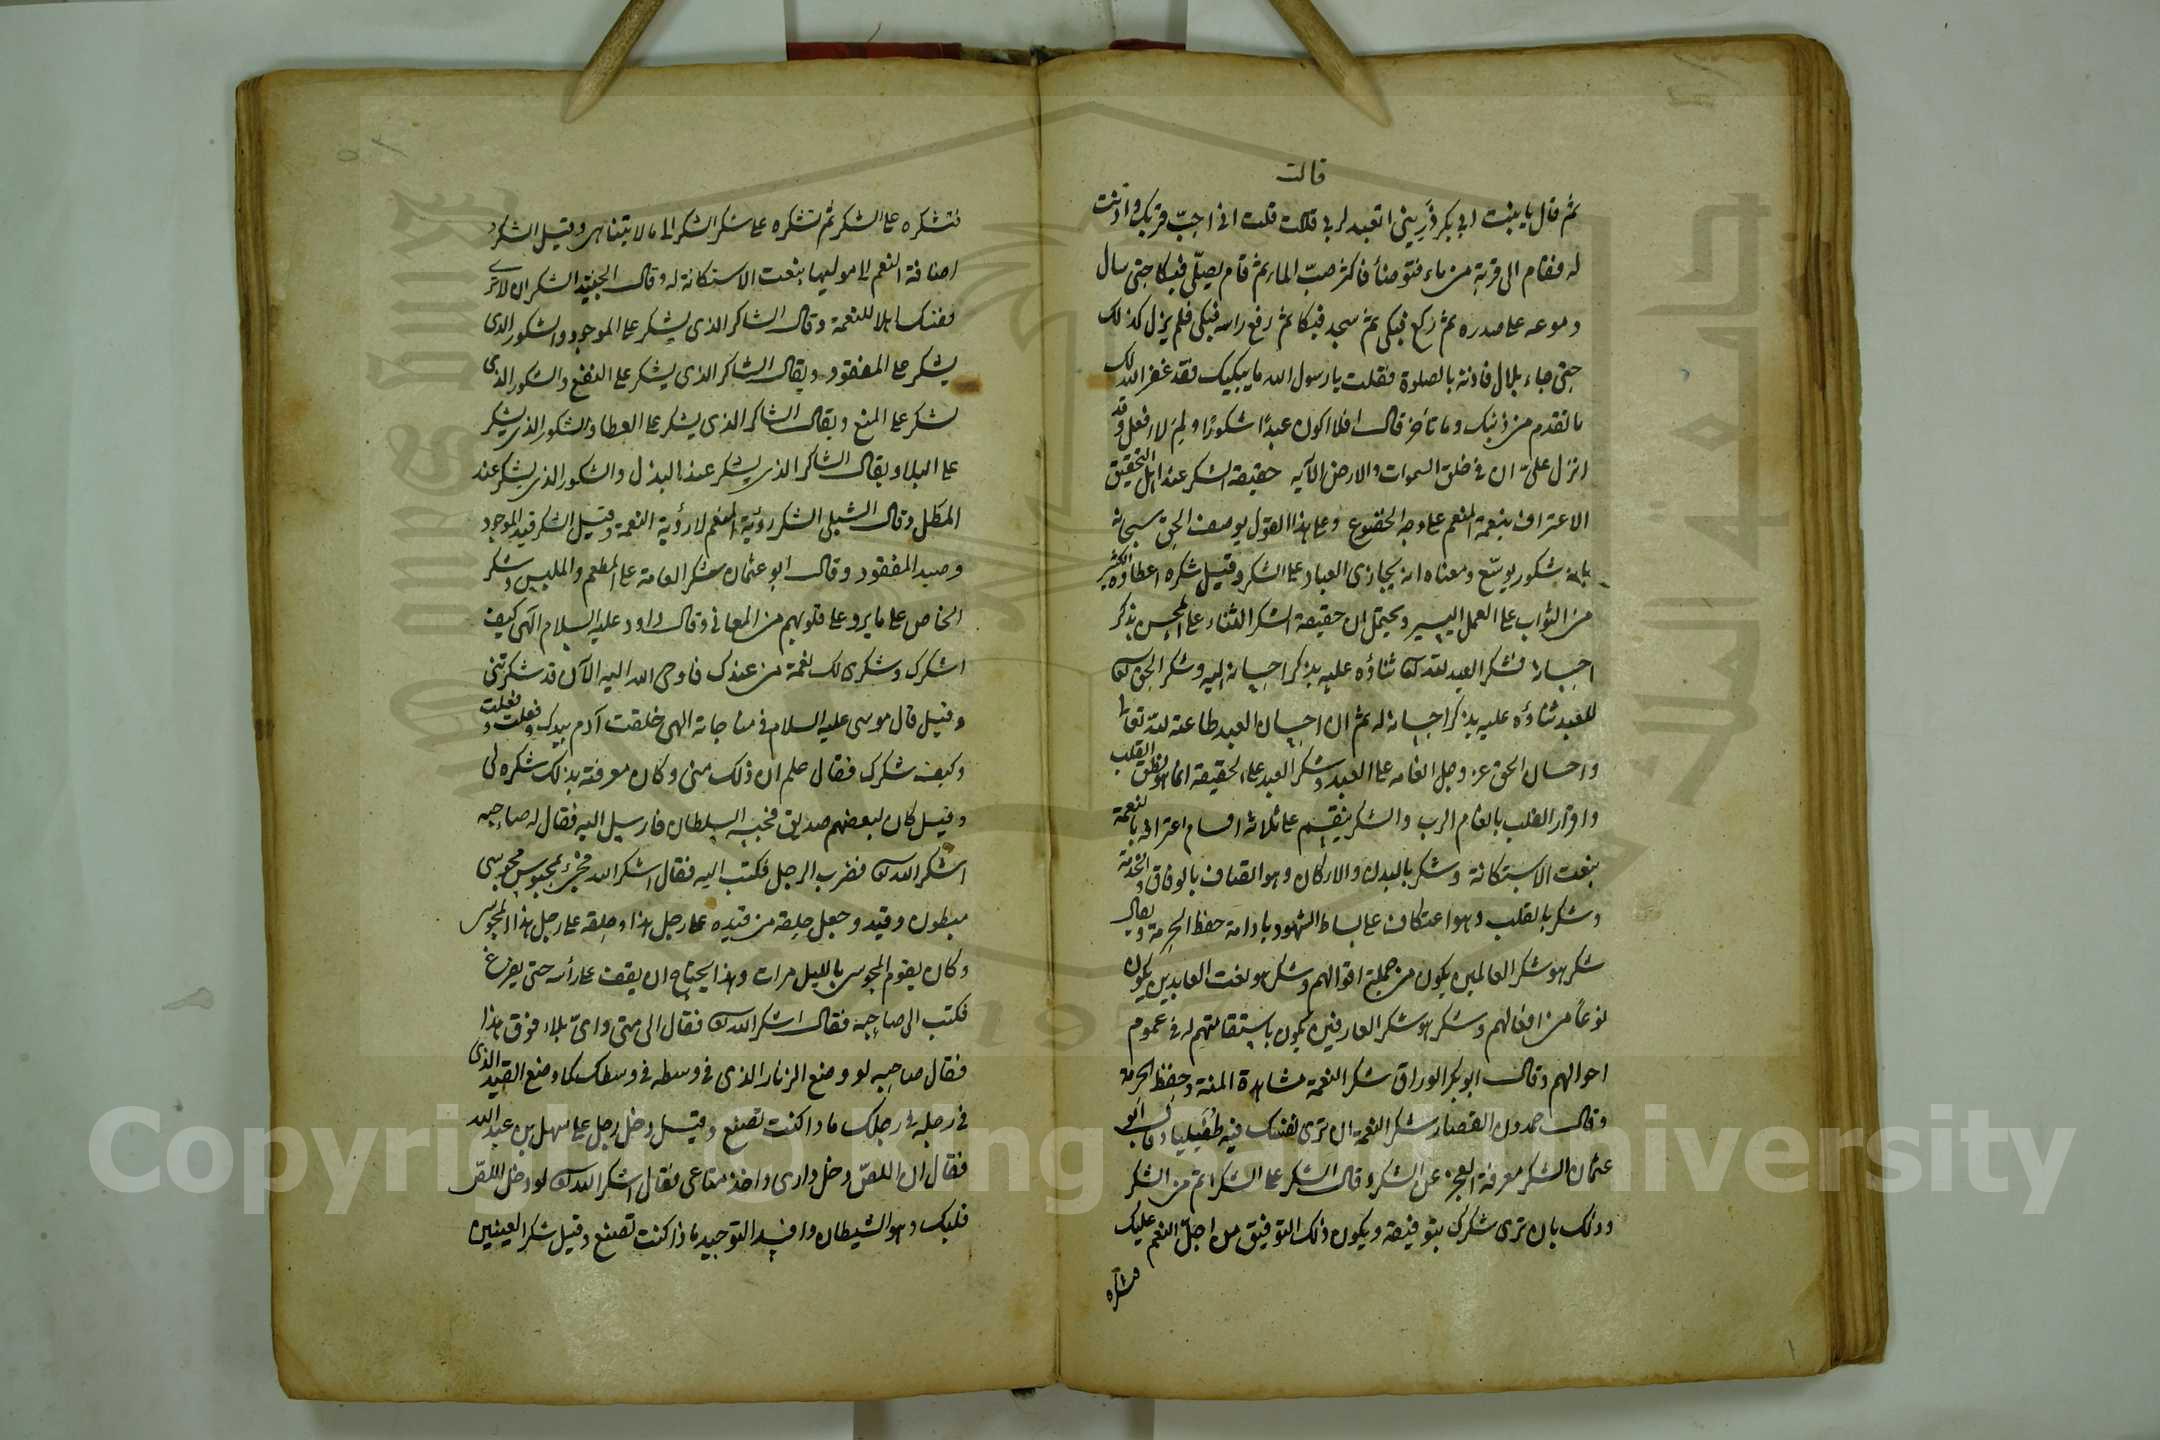 قالت
ثم قال يا بنت ابي بكر ذريني اتعبد لربي قالت قلت اني احب قربك واذنت
له فقام الى قربة من ماء فتوضأ فاكثر صب الماء ثم قام يصلي فبكا حتى سال
دموعه على صدره ثم ركع فبكى ثم سجد فبكا ثم رفع راسه فبكى فلم يزل كذلك
حتى جاء بلال فاذنه بالصلوة فقلت يا رسول الله ما يبكيك فقد غفر الله لك
ما تقدم من ذنبك وما تأخر قال افلا اكون عبدًا شكورًا ولم لا افعل وقد
انزل علي ان في خلق السموات والارض الآية حقيقة الشكر عند اهل التحقيق
الاعتراف بنعمة المنعم على وجه الخضوع وعلى هذا القول يوصف الحق سبحانه
بانه شكور توسع ومعناه انه يجازى العباد على الشكر وقيل شكره اعطاؤه الكثير
من الثواب على العمل اليسير ويحتمل ان حقيقة الشكر الثناء على المحسن بذكر
احسانه فشكر العبد لله تعالى ثناؤه عليه بذكر احسانه اليه وشكر الحق تعالى
للعبد ثناؤه عليه بذكر احسانه له ثم ان احسان العبد طاعته لله تعالى
واحسان الحق عز وجل انعامه على العبد وشكر العبد على الحقيقة انما هو نطق القلب
واقرار القلب بانعام الرب والشكر ينقسم على ثلاثة اقسام اعترافه بالنعمة
بنعت الاستكانة وشكر بالبدن والاركان وهو اتصاف بالوفاق والخدمة
وشكر بالقلب وهو اعتكاف على بساط الشهود بادامة حفظ الحرمة ويقال
شكر هو شكر العالمين يكون من جملة اقوالهم وشكر هو نعت العابدين يكون
نوعًا من افعالهم وشكر هو شكر العارفين يكون باستقامتهم له في عموم
احوالهم وقال ابو بكر الوراق شكر النعمة مشاهدة المنة وحفظ الحرمة
وقال حمدون القصار شكر النعمة ان ترى نفسك فيه طفيليا وقال ابو
عثمان الشكر معرفة العجز عن الشكر وقال الشكر على الشكر اتم من الشكر
وذلك بان ترى شكرك بتوفيقه ويكون ذلك التوفيق من اجل النعم عليك
فتشكره
فتشكره على الشكر ثم تشكره على شكر الشكر الى ما لا يتناهى وقيل الشكر
اضافة النعم الى موليها بنعت الاستكانة له وقال الجنيد الشكر ان لا ترى
نفسك اهلا للنعمة وقال الشاكر الذى يشكر على الموجود والشكور الذى
يشكر على المفقود ويقال الشاكر الذى يشكر على النفع والشكور الذى
يشكر على المنع ويقال الشاكر الذى يشكر على العطا والشكور الذى يشكر
على البلا ويقال الشاكر الذى يشكر عند البذل والشكور الذى يشكر عند
المطل وقال الشبلى الشكر رؤية المنعم لا رؤية النعمة وقيل الشكر قيد الموجود
وصيد المفقود وقال ابو عثمان شكر العامة على المطعم والملبس وشكر
الخاص على ما يرد على قلوبهم من المعاني وقال داود عليه السلام الهى كيف
اشكرك وشكرى لك نعمة من عندك فاوحى الله اليه الآن قد شكرتنى
وقيل قال موسى عليه السلام في مناجاته الهى خلقت آدم بيدك وفعلت وفعلت
وكيف شكرك فقال علم ان ذلك منى وكان معرفته بذلك شكره لى
وقيل كان لبعضهم صديق فحبسه السلطان فارسل اليه فقال له صاحبه
اشكر الله تعالى فضرب الرجل فكتب اليه فقال اشكر الله فجئ بمحبوس مجوسى
مبطون وقيد وجعل حلقة من قيده على رجل هذا وحلقة على رجل هذا المجوسى
وكان يقوم المجوسى بالليل مرات وهذا يحتاج ان يقف على رأسه حتى يفرغ
فكتب الى صاحبه فقال اشكر الله تعالى فقال الى متى واى بلاء فوق هذا
فقال صاحبه لو وضع الزنار الذى في وسطه في وسطك كما وضع القيد الذى
في رجله في رجلك ماذا كنت تصنع وقيل دخل رجل على سهل بن عبد الله
فقال ان اللص دخل دارى واخذ متاعى فقال اشكر الله تعالى لو دخل اللص
قلبك وهو الشيطان وافسد التوحيد ماذا كنت تصنع وقيل شكر العينين
Copyright © King Saud University
جامعة الملك سعود